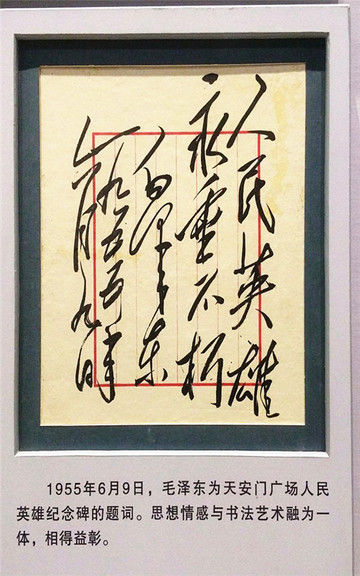 人民英雄
永垂不朽
毛泽东
一九五五年
六月九日
1955年6月9日，毛泽东为天安门广场人民
英雄纪念碑的题词。思想情感与书法艺术融为一
体，相得益彰。